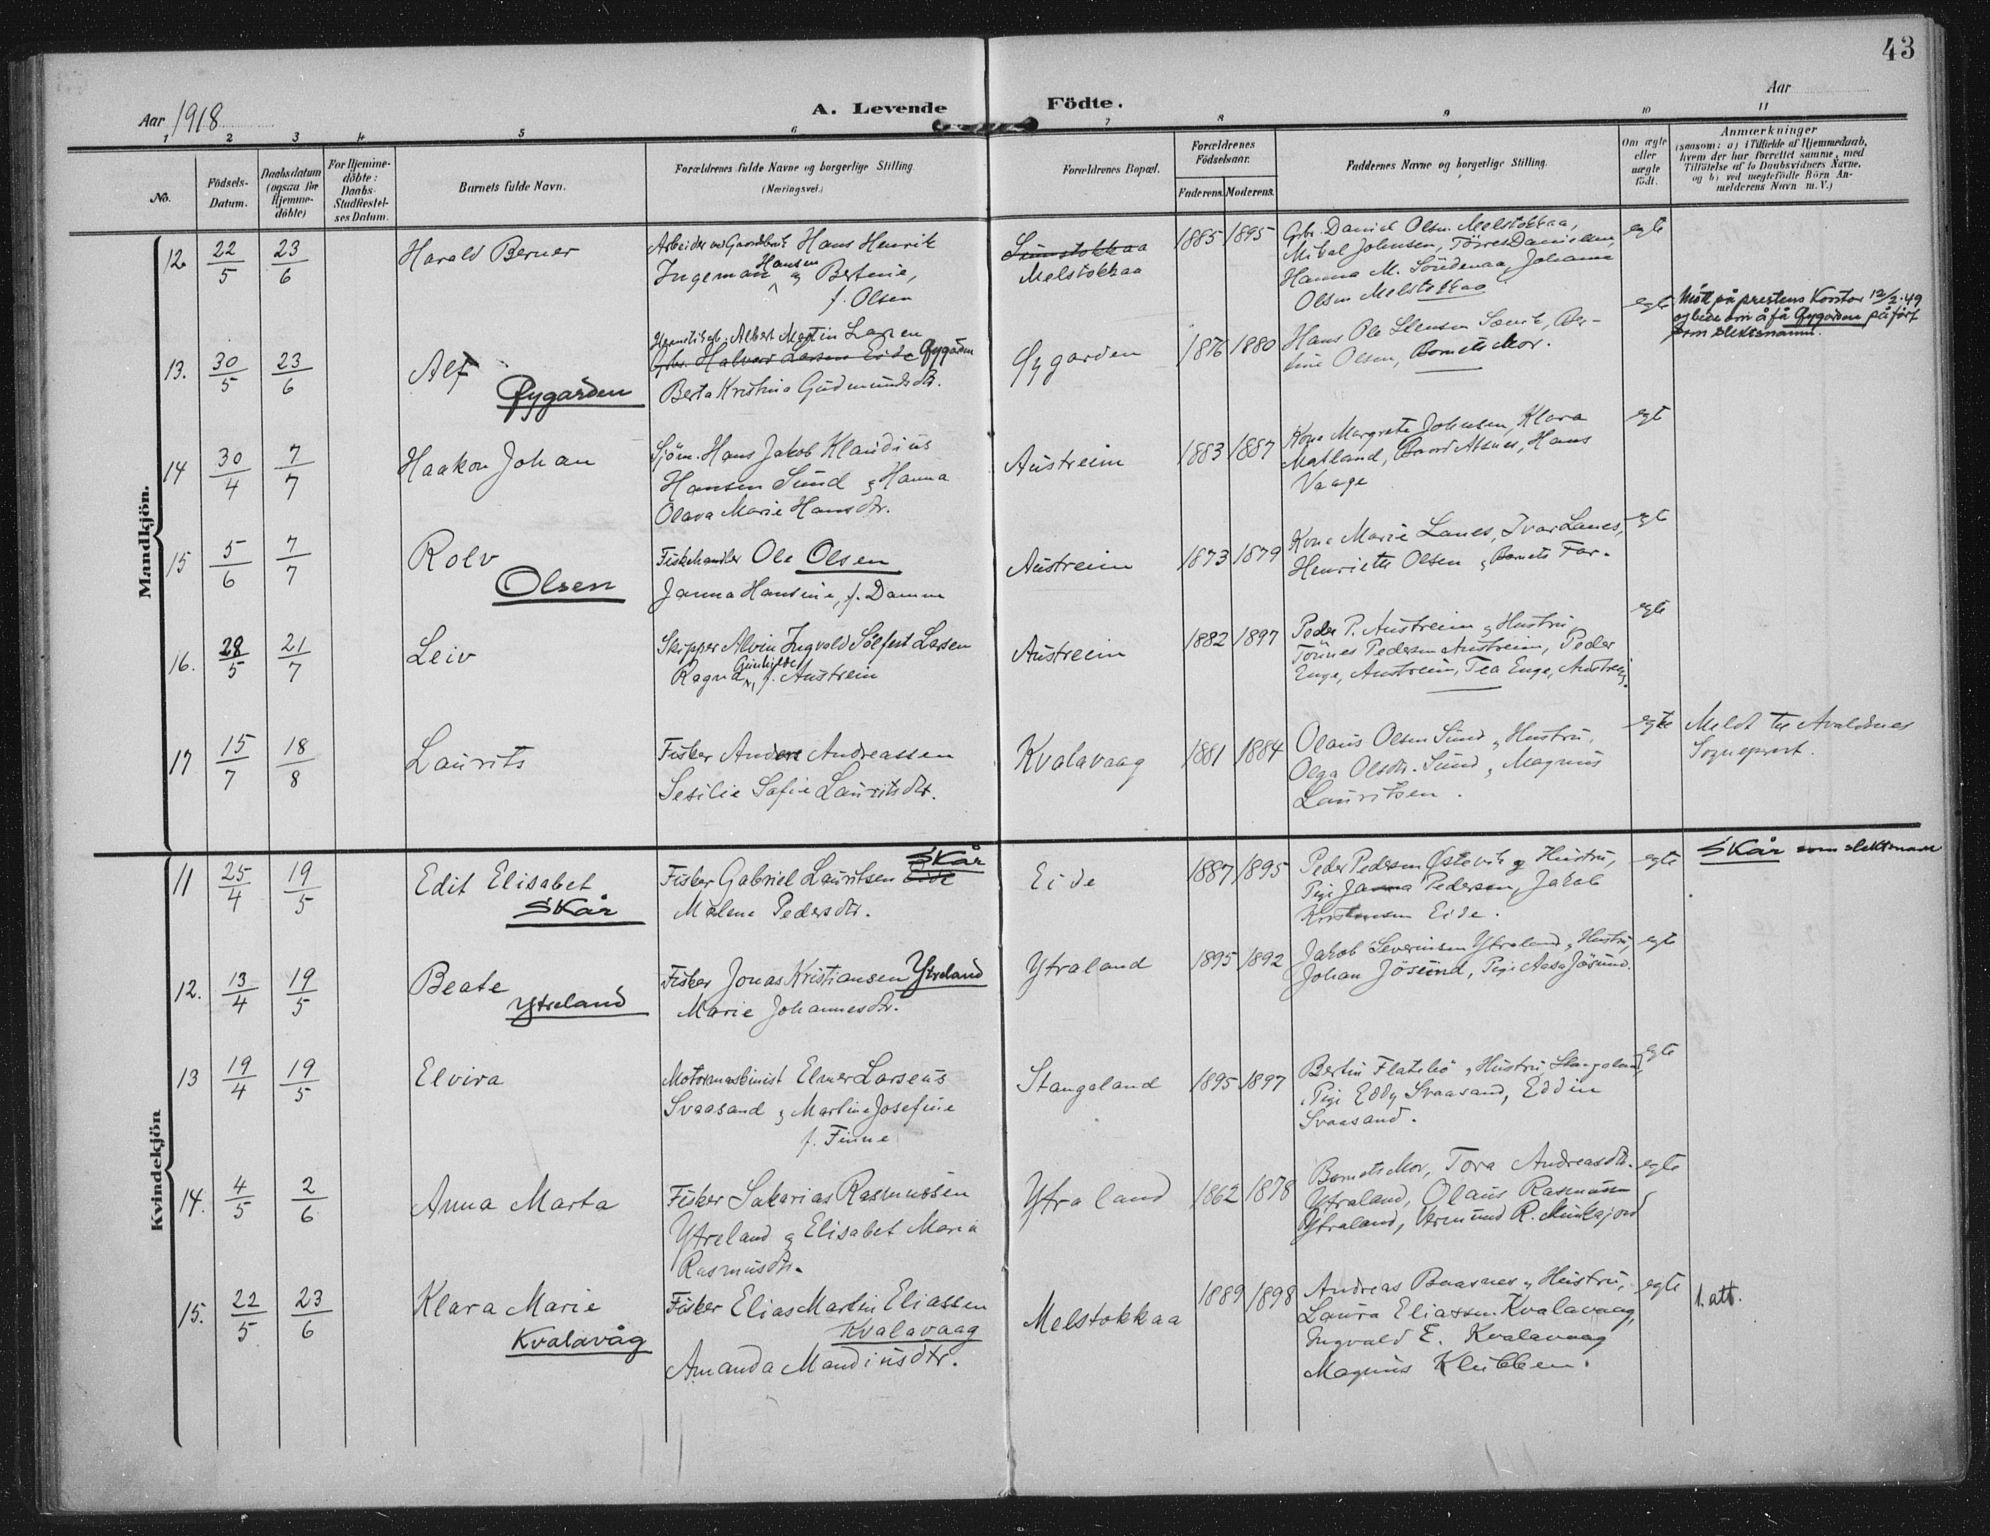 43
Aar 1918
A. Levende Födte.
Aar
1 2 3 4 5 6 7 8 9 10 11
No.
Födsels-
Datum.
Daabsdatum
(ogsaa for
Hjemme-
döbte)
For Hjemme-
döbte:
Daabs-
Stadfæstel-
ses Datum.
Barnets fulde Navn.
Forældrenes fulde Navne og borgerlige Stilling.
(Næringsvei.)
Forældrenes Bopæl.
Forældrenes
Födselsaar.
Faderens. Moderens.
Faddernes Navne og borgerlige Stilling.
Om ægte
eller
uægte
födt.
Anmærkninger
(saasom: a) i Tilfælde af Hjemmedaab,
hvem der har forrettet samme, med
Tilföielse af to Daabsvidners Navne,
og b) ved uægtefödte Börn An-
melderens Navn m. V.)
Mandkjön.
12 22/5 23/6 Harald Berner
Arbeider ved Gaardsbruk Hans Henrik
Ingeman Hansen og Bertine,
f. Olsen
Melstokkaa
1885 1895
Gbr. Daniel Olsen Melstokkaa,
Mikal Johnsen, Törres Danielsen,
Hanna M. Söndenaa, Johanne
Olsen Melstokkaa
egte
13. 30/5 23/6 Alf
Øygarden
Albert Martin Larsen
Gbr. Halvard Larsen Eide Øygården
Berta Kristina Gudmundsdtr.
Øygarden
1876 1880
Hans Ole Steensen Sævik, Ber-
tine Olsen, Barnets Mor.
egte
Møtt på prestens Kontor 12/2-49
og bede om å få Øygarden påført
som slektsnamn.
14 30/4 7/7 Haakon Johan
Sjöm. Hans Jakob Klaudius
Hansen Sund og Hanna
Olava Marie Hansdtr.
Austreim
1883 1887
Kone Margrete Johnsen, Klara
Matland, Hans
Vaage
egte
15 5/6 7/7 Rolv
Olsen
Fiskehandler Ole Olsen
Janna Hansine, f. Damm
Austreim
1873 1879
Kone Marie Lanes, Ivar Lanes,
Henriette Olsen og Barnets Far.
egte
16. 28/5 21/7 Leiv
Skipper Alvin Ingvald Sölfest Larsen
Ragna Gunhilde, f. Austreim
Austreim
1882 1897
Peder P. Austreim og Hustru
Tönnes Pedersen Austreim, Peder
Enge, Austreim, Tea Enge, Austreim.
egte
17 15/7 18/8 Laurits
Fisker Anders Andreassen
Sesilie Sofie Lauritsdtr.
Kvalavaag
1881 1884
Olaus Olsen Sund og Hustru,
Olga Olsdtr. Sund, Magnus
Lauritsen.
egte
Meldt til Avaldsnes
Sogneprest.
Kvindekjön
11 25/4 19/5 Edit Elisabet
Skår
Fisker Gabriel Lauritsen Eide Skår
Malene Pedersdtr.
Eide
1887 1895
Peder Pedersen Østevik og Hustru,
Pige Janna Pedersen, Jakob
Kristensen Eide.
egte
Skår som slektsnavn
12. 13/4 19/5 Beate
Ytreland
Fisker Jonas Kristiansen Ytreland
Marie Johannesdtr.
Ytraland
1895 1892
Jakob Severinsen Ytreland og Hustru,
Johan Jösund, Pige Aasa Jösund.
egte
13 19/4 19/5 Elvira
Motormaskinist Elmer Larsens
Svaasand og Martine Josefine
f. Finne
Stangeland
1895 1897
Bertin Flatebö og Hustru, Stangeland,
Pige Eddy Svaasand, Eddin
Svaasand.
egte
14. 4/5 2/6 Anna Marta
Fisker Sakarias Rasmussen
Ytreland og Elisabet Maria
Rasmusdtr.
Ytraland
1862 1878
Barnets Mor, Tora Andreasdtr.
Ytraland, Olaus Rasmussen
Ytraland, R.
egte
15. 22/5 23/6 Klara Marie
Kvalavåg
Fisker Elias Martin Eliassen
Kvalavaag
Amanda Mandiusdtr.
Melstokkaa
1889 1898
Andreas Baasnes og Hustru,
Laura Eliassen Kvalavaag,
Ingvald E. Kvalavaag
Magnus Klubben.
egte
1. att.